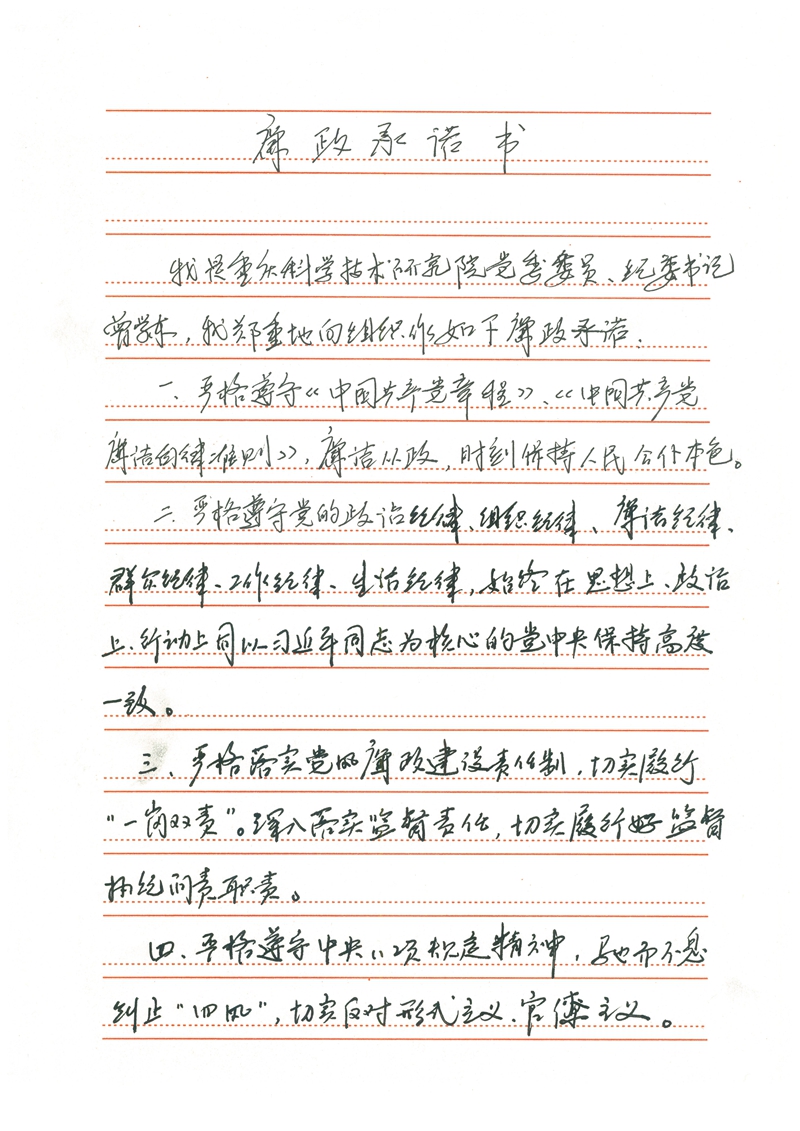 廉政承诺书
我是重庆科学技术研究院党委委员、纪委书记
曾学东，我郑重地向组织作如下廉政承诺.
一、严格遵守《中国共产党章程》、《中国共产党
廉洁自律准则》，廉洁从政，时刻保持人民公仆本色。
二、严格遵守党的政治纪律、组织纪律、廉洁纪律、
群众纪律、工作纪律、生活纪律，始终在思想上、政治
上、行动上同以习近平同志为核心的党中央保持高度
一致。
三、严格落实党风廉政建设责任制，切实履行
“一岗双责”。深入落实监督责任，切实履行好监督
执纪问责职责。
四、严格遵守中央八项规定精神，驰而不息
纠止“四风”，切实反对形式主义、官僚主义。